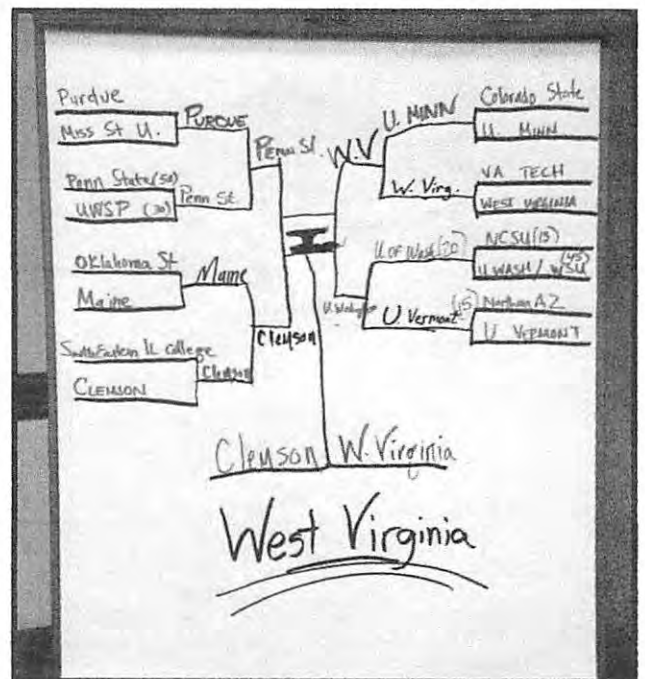 Purdue
Miss St U.
PURDUE
Penn State (50)
UWSP (30)
Penn St.
Penn St.
Oklahoma St
Maine
Maine
SouthEastern IL College
CLEMSON
Clemson
Clemson
W.V
U. MINN
Colorado State
U. MINN
W. Virg.
VA TECH
WEST VIRGINIA
U OF Wash (20)
NCSU (15)
U WASH / WSU (45)
U. Vermont
(15) Northern AZ
U. VERMONT
Clemson W. Virginia
West Virginia